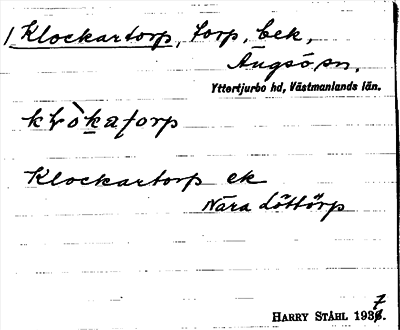 1 Klockartorp, torp, bek,
Ängsö sn,
Yttertjurbo hd, Västmanlands län.
Klockartorp ek
Nära Löttörp
HARRY STÅHL 1937.